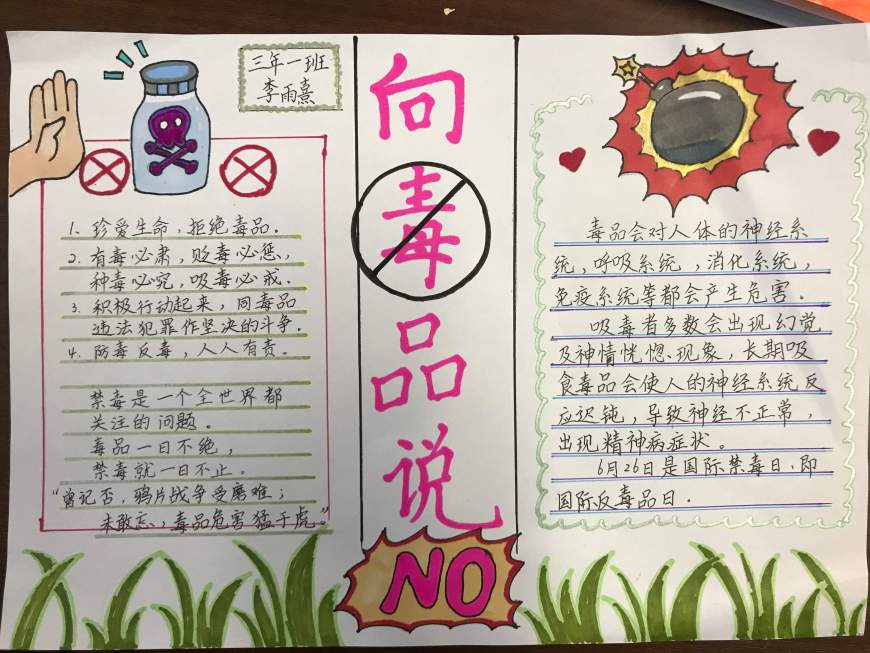 三年一班
李雨熹
1. 珍爱生命，拒绝毒品.
2. 有毒必肃，贩毒必惩，
种毒必究，吸毒必戒.
3. 积极行动起来，同毒品
违法犯罪作坚决的斗争.
4. 防毒反毒，人人有责.
禁毒是一个全世界都
关注的问题.
毒品一日不绝，
禁毒就一日不止.
“曾记否，鸦片战争受磨难；
未敢忘，毒品危害猛于虎.”
向
毒
品
说
NO
毒品会对人体的神经系
统，呼吸系统，消化系统，
免疫系统等都会产生危害.
吸毒者多数会出现幻觉
及神情恍惚、现象，长期吸
食毒品会使人的神经系统反
应迟钝，导致神经不正常，
出现精神病症状。
6月26日是国际禁毒日，即
国际反毒品日.